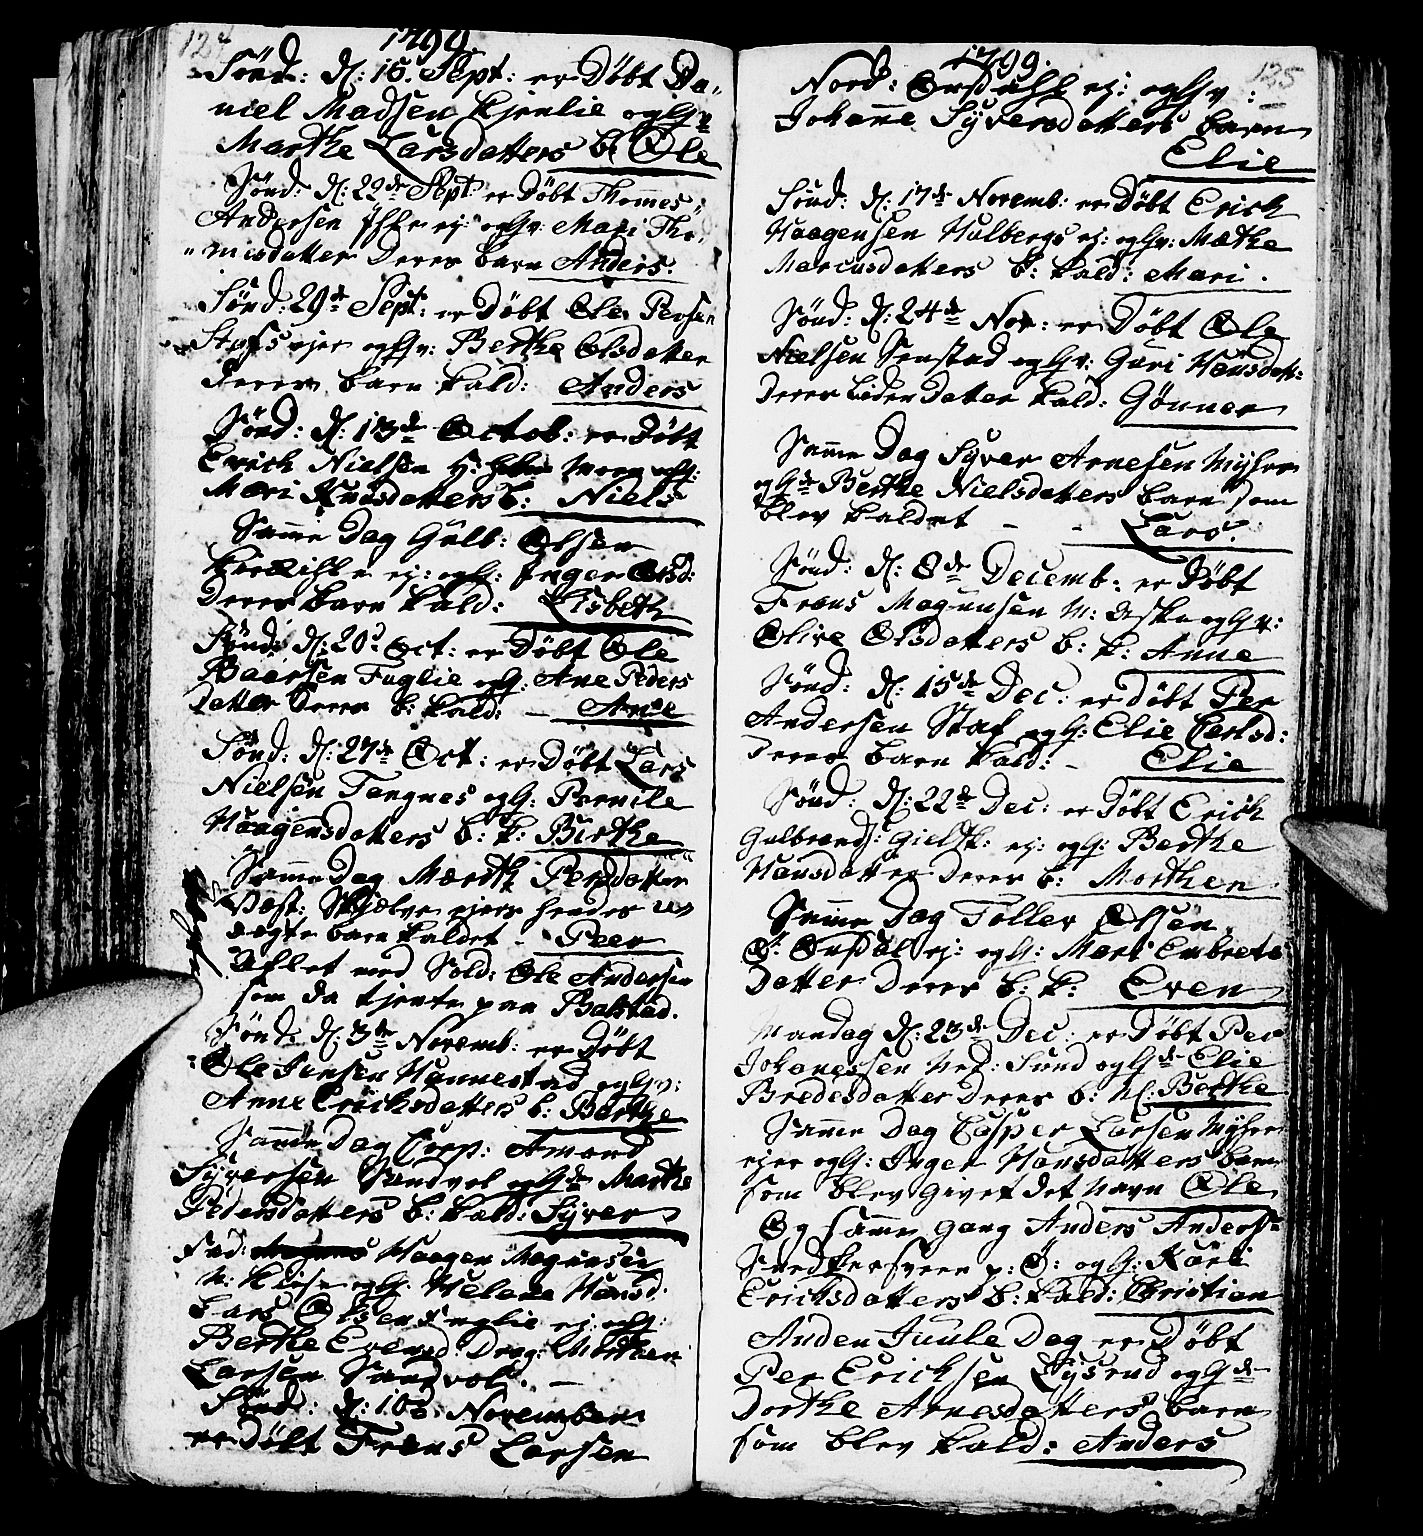 124
1799.
Sönd: d: 15. Sept: er Döbt Da-
niel Madsen Kjenlie og Hv
Marthe Larsdatters b. Ole
Sönd: d: 22de Sept er Döbt Thommes
Andersen ej: og Hv: Mari Tho-
misdatter Deres barn Anders.
Sönd: 29de Sept: er Döbt Ole Persen
ejer og Hv: Berthe Olsdatter
Deres barn kald: Anders
Sönd: d: 13de Octob: er Döbt
Erich Nielsen og H:
Mari Knudsdatters b: Niels
Samme Dag Gulb: Olsen
ej: og H: Inger Olsd:
Deres barn kald: Lisbeth
Sönd: d: 20d Oct: er Döbt Ole
Baarsen Fuglie og H: Ane Peders
Datter Deres b: kald: - Ane
Sönd: d: 27de Oct: er Döbt Lars
Nielsen Tangnes og H: Pernile
Haagensdatters b: k: Birthe
Samme Dag Marthe Persdatter
Vest: ejers hendes u-
ægte barn kaldet - Peer
Aflet med Sold: Ole Andersen
som da tjente paa Balstad.
Sönd: d: 3de Novemb: er Döbt
Ole Jensen Hannestad og Hv:
Anne Ericksdatters b: Berthe
Samme Dag Corp: Amond
Syversen Sandvol og Hde Marthe
Pedersdatters b: kald: Syver
Fad: Haagen Magnusen
og H. Helene Hansd.
Lars Olsen Fuglie ej: og H:
Berthe Evensd: Drag: Morthen
Larsen Sandvol. -
Sönd: d: 10de November
er Döbt Frans Larsen
125
1799.
Nord: Örsdahl ej: og Hv:
Johanne Syversdatters barn
Elie
Sönd: d: 17de Novemb: er Döbt Erich
Haagensen Hulbergs ej: og Hv: Mathe
Marcusdatters b: kald: Mari.
Sönd: d: 24de Nov: er Döbt Ole
Nielsen Senstad og Hv: Guri Hansdatt:
Deres liden Datter kald: Gönner
Samme Dag Syver Arnesen Myhre
og Hde Berthe Nielsdatters barn som
blev kaldet - - Lars.
Sönd: d: 8de Decemb: er Döbt
Frans Magnusen N: Aske og Hv:
Olive Olsdatters b: k: Anne
Sönd: d: 15de Dec: er döbt Per
Andersen Staf og H: Elie Carlsd:
Deres barn kald: - Elie
Sönd: d: 22de Dec: er Döbt Erich
Gulbrands: ej: og H: Berthe
Hansdatter Deres b: Morthen
Samme Dag Toller Olsen
Ö: Örsdal ej: og H: Mari Embrets
Datter Deres b: k: Even
Mandag d: 23de Dec: er Döbt Per
Johanessen Ned: Sund og Hde Elie
Bredesdatter Deres b: N: Berthe
Samme Dag Casper Larsen Myhre
ejer og H: Inger Hansdatters barn
som blev givet det Navn Ole
Og samme gang Anders Anders:
p: Ö: og H: Kari
Ericksdatters b: kald: Christian
Anden Juule Dag er Döbt
Per Ericksen Lysrud og Hde
Dorthe Arnesdatters barn
som blev kald: Anders